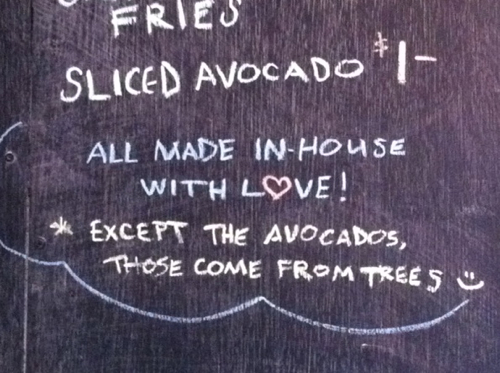 FRIES
SLICED AVOCADO $1-
ALL MADE IN-HOUSE
WITH L♡VE!
* EXCEPT THE AVOCADOS,
THOSE COME FROM TREES